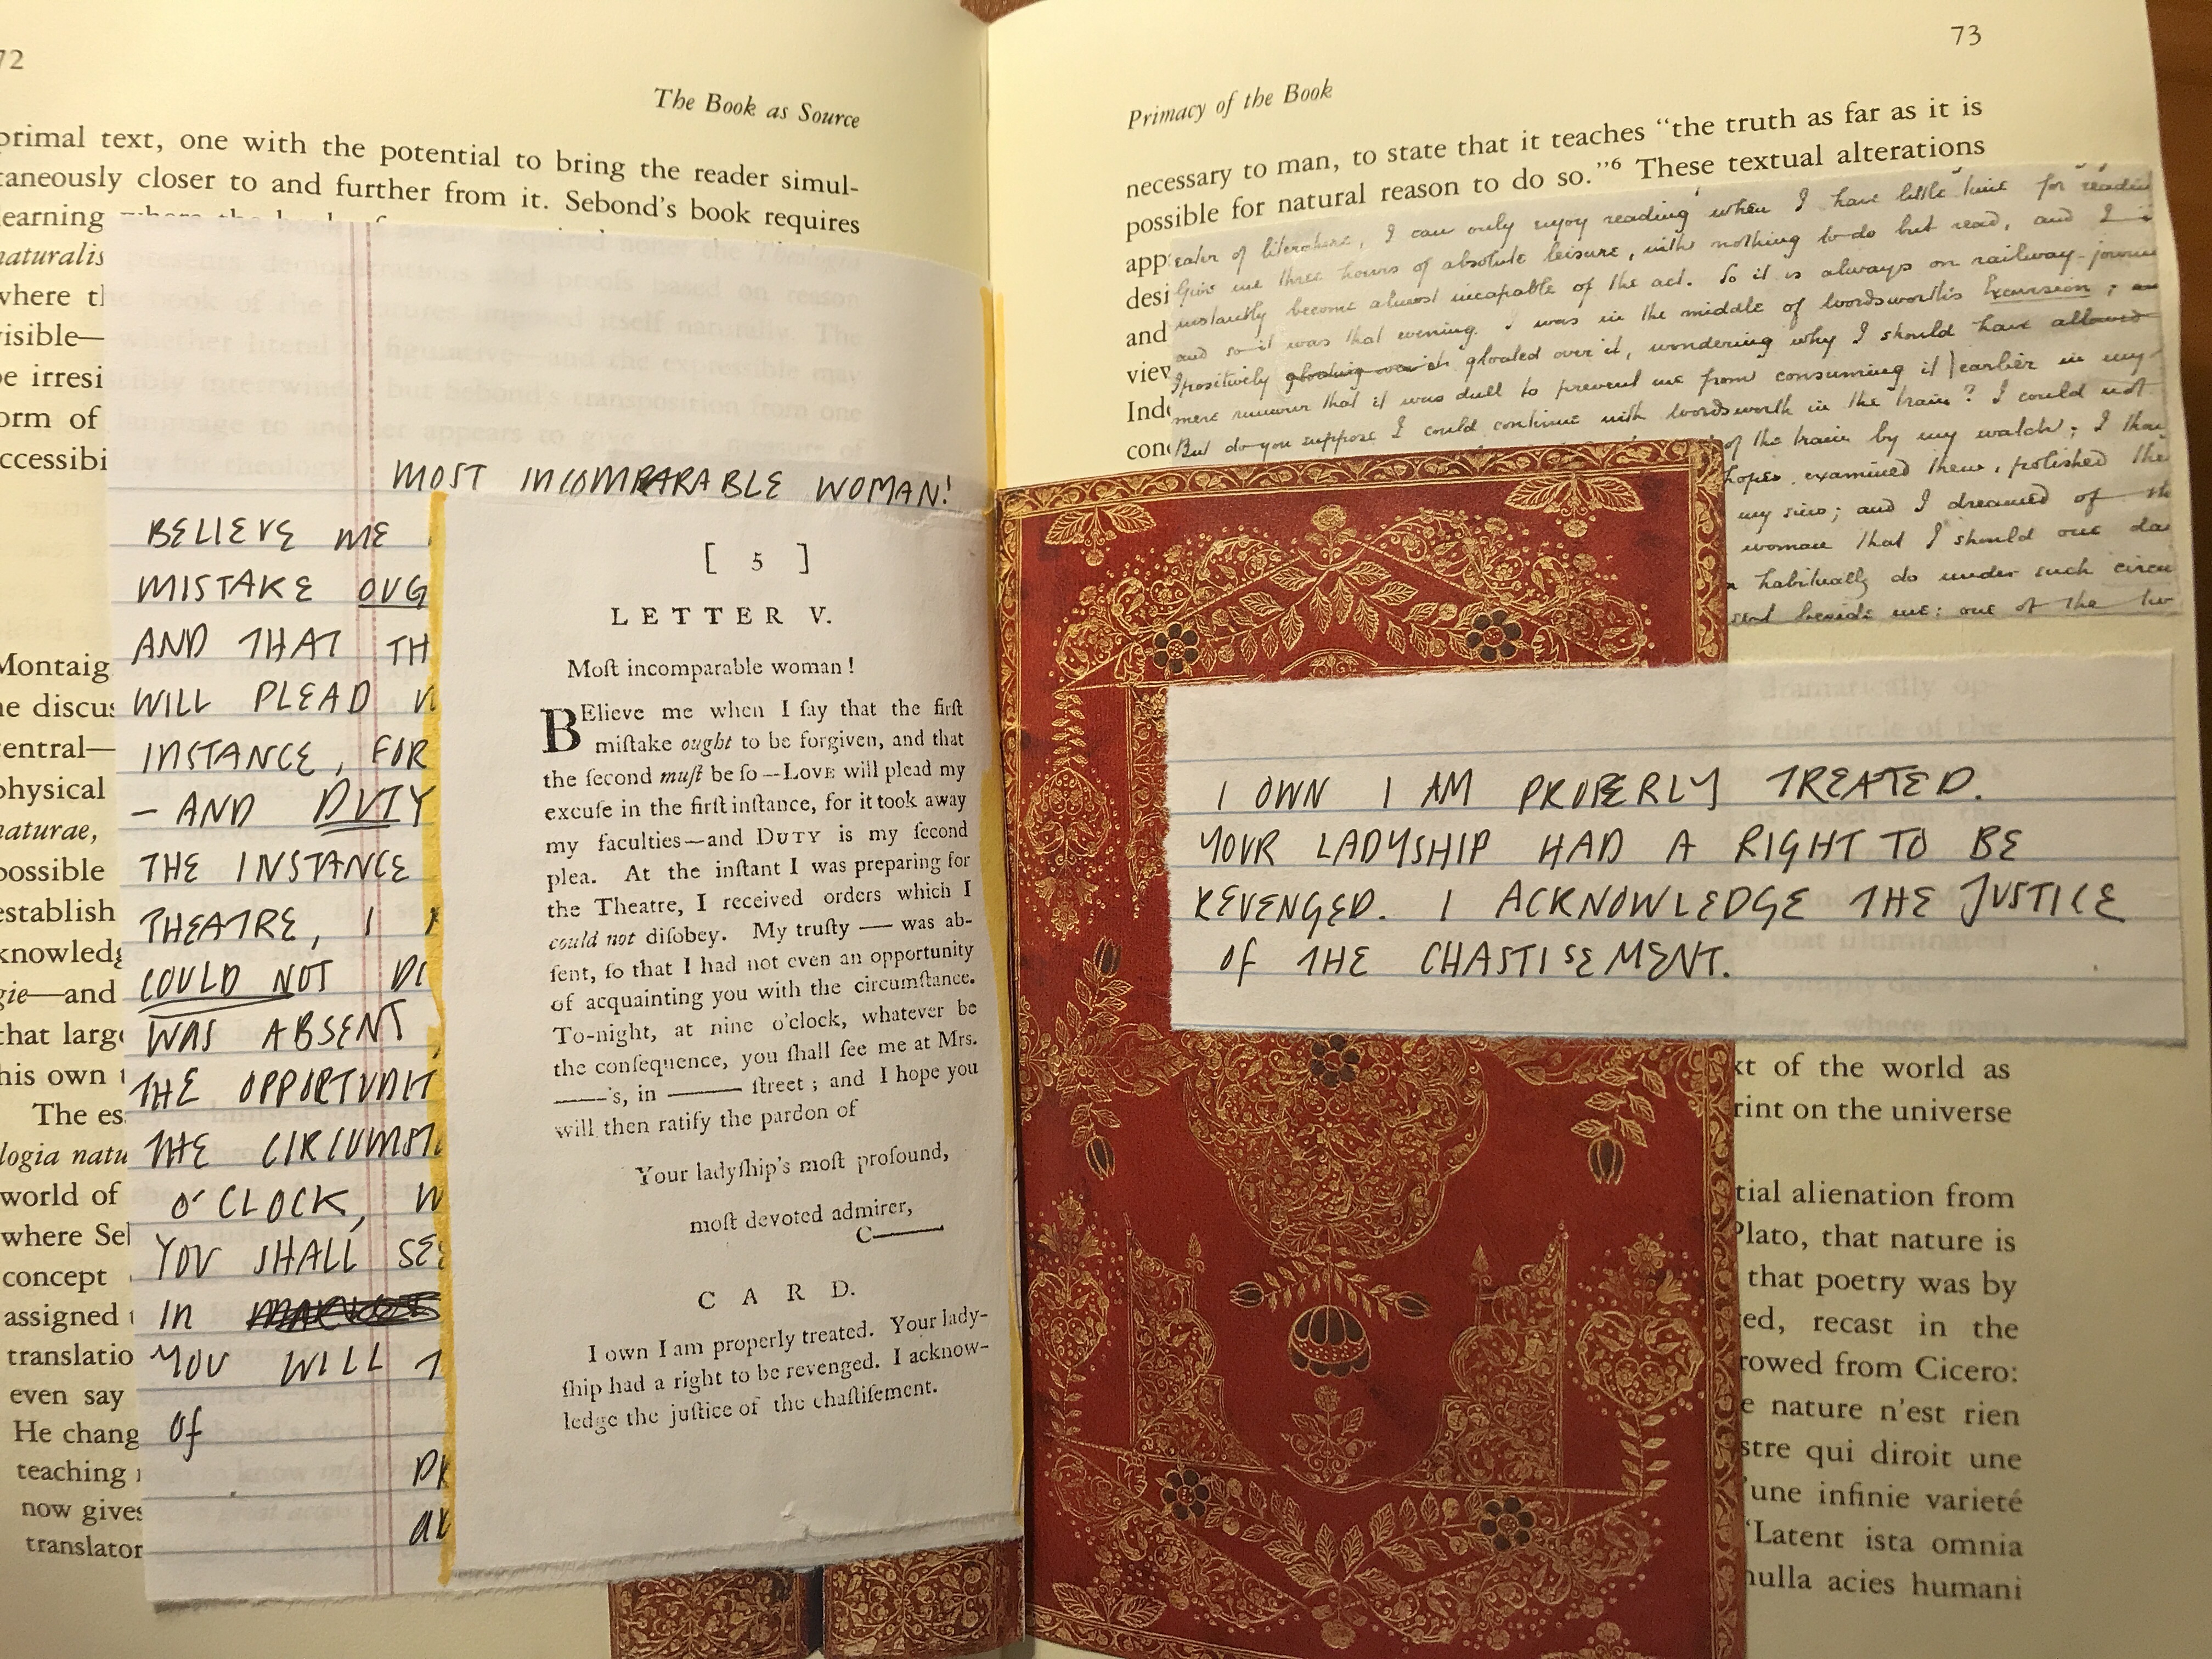 72
The Book as Source
primal text, one with the potential to bring the reader simul-
taneously closer to and further from it. Sebond's book requires
learning where the book of nature required none: the Theologia
naturalis presents demonstrations and proofs based on reason
where the book of the creatures imposed itself naturally. The
visible—whether literal or figurative—and the expressible may
be irresi cibly intertwined, but Sebond's transposition from one
form of language to another appears to give a measure of
ccessibi for theology
MOST INCOMPARABLE WOMAN!
BELIEVE ME
MISTAKE OUG
AND THAT TH
WILL PLEAD
INSTANCE, FOR
- AND DUTY
THE INSTANCE
THEATRE, I
COULD NOT DI
WAS ABSENT,
THE OPPORTUNIT
THE CIRCUMST
O'CLOCK, W
YOU SHALL SEE
IN
YOU WILL
OF
Montaig
he discus
central—
physical
naturae,
possible
establish
knowledg
gie—and
that larg
his own
The es
logia natu
world of
where Se
concept
assigned
translatio
even say
He chang
teaching
now gives
translator
[ 5 ]
LETTER V.
Moſt incomparable woman!
BElieve me when I ſay that the firſt
miſtake ought to be forgiven, and that
the ſecond muſt be ſo—LOVE will plead my
excuſe in the firſt inſtance, for it took away
my faculties—and DUTY is my ſecond
plea. At the inſtant I was preparing for
the Theatre, I received orders which I
could not diſobey. My truſty — was ab-
ſent, ſo that I had not even an opportunity
of acquainting you with the circumſtance.
To-night, at nine o'clock, whatever be
the conſequence, you ſhall ſee me at Mrs.
——'s, in —— ſtreet; and I hope you
will then ratify the pardon of
Your ladyſhip's moſt profound,
moſt devoted admirer,
C——
CARD.
I own I am properly treated. Your lady-
ſhip had a right to be revenged. I acknow-
ledge the juſtice of the chaſtiſement.
73
Primacy of the Book
necessary to man, to state that it teaches "the truth as far as it is
possible for natural reason to do so."6 These textual alterations
app
desi
and
view
Inde
conc
eater of literature, I can only enjoy reading when I have little time for readin
Give me three hours of absolute leisure, with nothing to do but read, and I
instantly become almost incapable of the act. So it is always on railway-journe
and so it was that evening. I was in the middle of Wordsworth's Excursion;
I positively gloating over it gloated over it, wondering why I should have allowed
mere rumour that it was dull to prevent me from consuming it earlier in my
But do you suppose I could continue with Wordsworth in the train? I could not
of the train by my watch; I thou
hopes, examined them, polished the
my sins; and I dreamed of
woman that I should one da
habitually do under such circu
seat beside me: one of the tw
I OWN I AM PROPERLY TREATED.
YOUR LADYSHIP HAD A RIGHT TO BE
REVENGED. I ACKNOWLEDGE THE JUSTICE
OF THE CHASTISEMENT.
dramatically op-
the circle of the
based on the
that illuminated
where man
xt of the world as
rint on the universe
tial alienation from
Plato, that nature is
that poetry was by
ed, recast in the
rowed from Cicero:
e nature n'est rien
stre qui diroit une
'une infinie varieté
'Latent ista omnia
nulla acies humani